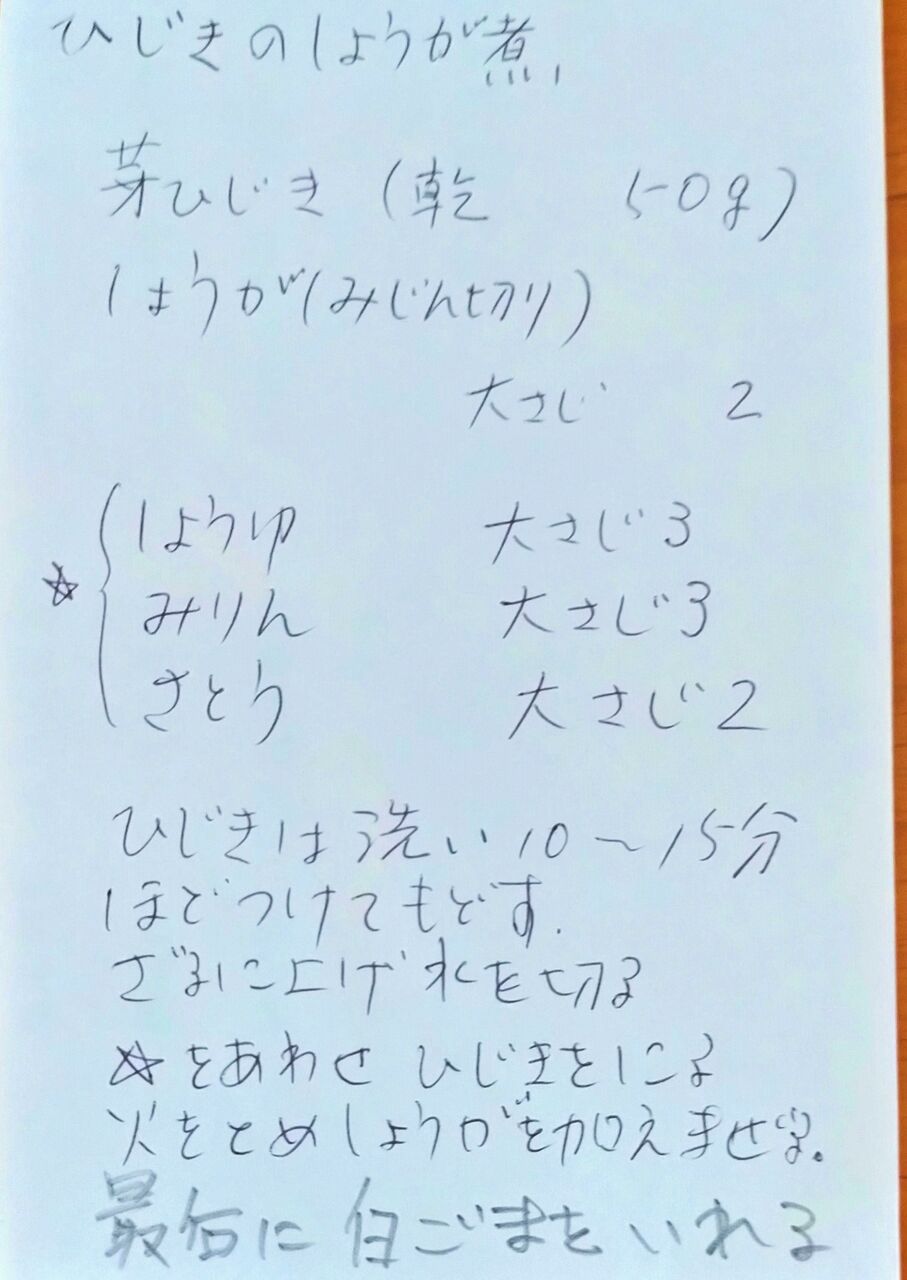 ひじきのしょうが煮
芽ひじき(乾 50g)
しょうが(みじん切り)
大さじ 2
しょうゆ 大さじ3
☆ みりん 大さじ3
さとう 大さじ2
ひじきは洗い10〜15分
ほどつけてもどす.
ざるに上げ水を切る
☆をあわせ ひじきをにる
火をとめしょうがを加えませる。
最后に白ごまをいれる